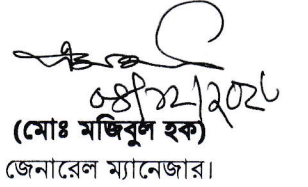 ০৪/১২/২০২৮
(মোঃ মজিবুল হক)
জেনারেল ম্যানেজার।